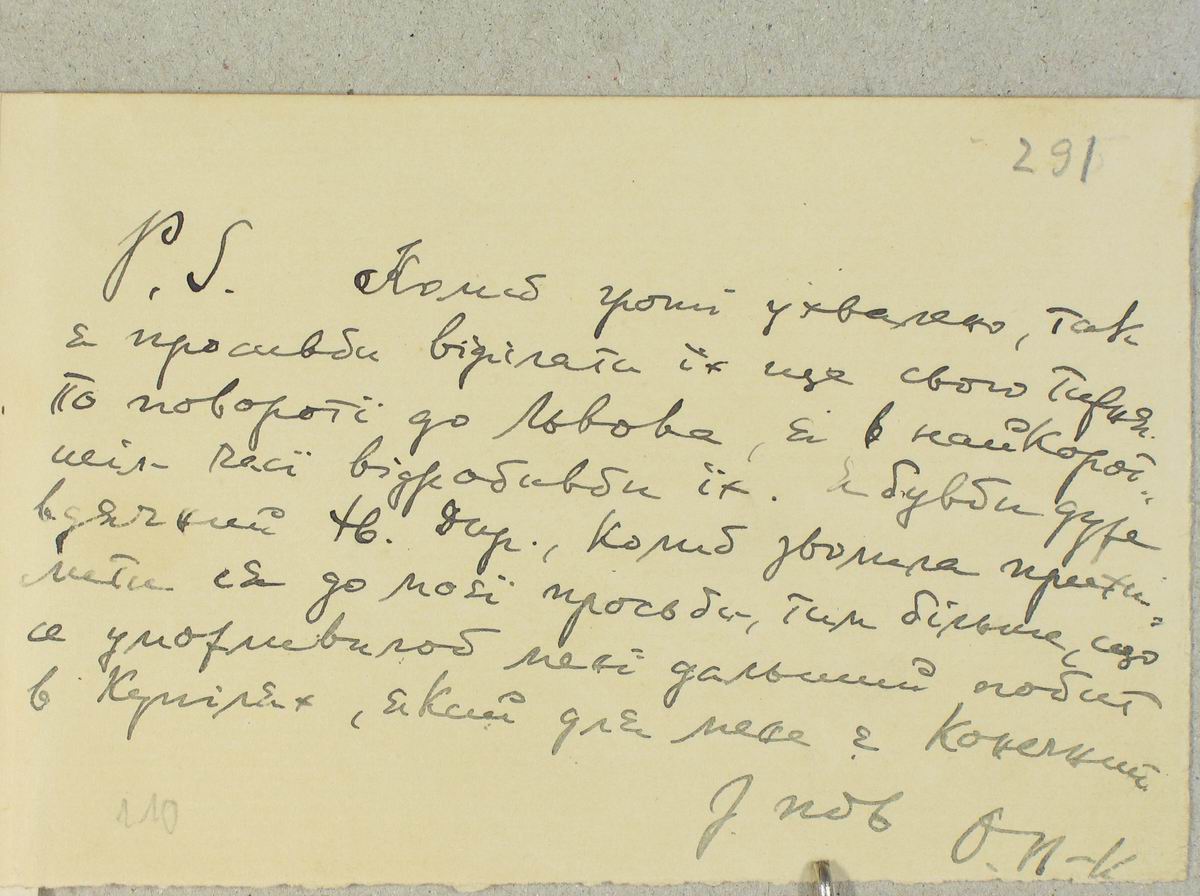 291
P. S. Колиб гроші ухвалено, так
я просивби відіслати їх ще свого тижня.
По поворотї до Львова, я в найкорот-
шім часї відробивби їх. Я бувби дуже
вдячний Хв. Дир., колиб зволила прихи-
лити ся до моєї просьби, тим більше, що
се уможливилоб менї дальший побит
в Купілях, який для мене є конечний.
З пов О. П-К
110